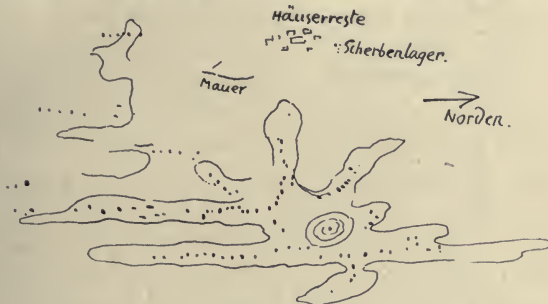 Häuserreste
Scherbenlager.
Mauer
Norden.